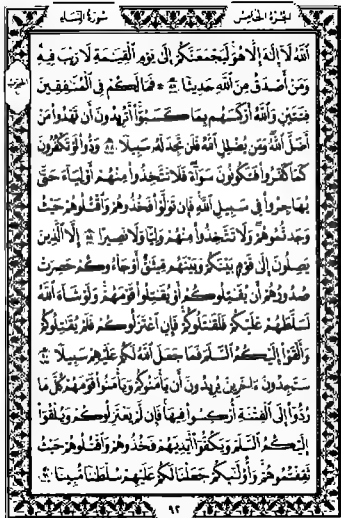 الجزء الخامس
سورة النساء
اللَّهُ لَا إِلَٰهَ إِلَّا هُوَ لَيَجْمَعَنَّكُمْ إِلَىٰ يَوْمِ الْقِيَٰمَةِ لَا رَيْبَ فِيهِ
وَمَنْ أَصْدَقُ مِنَ اللَّهِ حَدِيثًا ٨٧ ۞ فَمَا لَكُمْ فِي الْمُنَٰفِقِينَ
فِئَتَيْنِ وَاللَّهُ أَرْكَسَهُم بِمَا كَسَبُوا أَتُرِيدُونَ أَن تَهْدُوا مَنْ
أَضَلَّ اللَّهُ وَمَن يُضْلِلِ اللَّهُ فَلَن تَجِدَ لَهُ سَبِيلًا ٨٨ وَدُّوا لَوْ تَكْفُرُونَ
كَمَا كَفَرُوا فَتَكُونُونَ سَوَآءً فَلَا تَتَّخِذُوا مِنْهُمْ أَوْلِيَآءَ حَتَّىٰ
يُهَاجِرُوا فِي سَبِيلِ اللَّهِ فَإِن تَوَلَّوْا فَخُذُوهُمْ وَاقْتُلُوهُمْ حَيْثُ
وَجَدتُّمُوهُمْ وَلَا تَتَّخِذُوا مِنْهُمْ وَلِيًّا وَلَا نَصِيرًا ٨٩ إِلَّا الَّذِينَ
يَصِلُونَ إِلَىٰ قَوْمٍ بَيْنَكُمْ وَبَيْنَهُم مِّيثَٰقٌ أَوْ جَآءُوكُمْ حَصِرَتْ
صُدُورُهُمْ أَن يُقَٰتِلُوكُمْ أَوْ يُقَٰتِلُوا قَوْمَهُمْ وَلَوْ شَآءَ اللَّهُ
لَسَلَّطَهُمْ عَلَيْكُمْ فَلَقَٰتَلُوكُمْ فَإِنِ اعْتَزَلُوكُمْ فَلَمْ يُقَٰتِلُوكُمْ
وَأَلْقَوْا إِلَيْكُمُ السَّلَمَ فَمَا جَعَلَ اللَّهُ لَكُمْ عَلَيْهِمْ سَبِيلًا ٩٠
سَتَجِدُونَ ءَاخَرِينَ يُرِيدُونَ أَن يَأْمَنُوكُمْ وَيَأْمَنُوا قَوْمَهُمْ كُلَّ مَا
رُدُّوا إِلَى الْفِتْنَةِ أُرْكِسُوا فِيهَا فَإِن لَّمْ يَعْتَزِلُوكُمْ وَيُلْقُوا
إِلَيْكُمُ السَّلَمَ وَيَكُفُّوا أَيْدِيَهُمْ فَخُذُوهُمْ وَاقْتُلُوهُمْ حَيْثُ
ثَقِفْتُمُوهُمْ وَأُولَٰئِكُمْ جَعَلْنَا لَكُمْ عَلَيْهِمْ سُلْطَٰنًا مُّبِينًا ٩١
٩٢